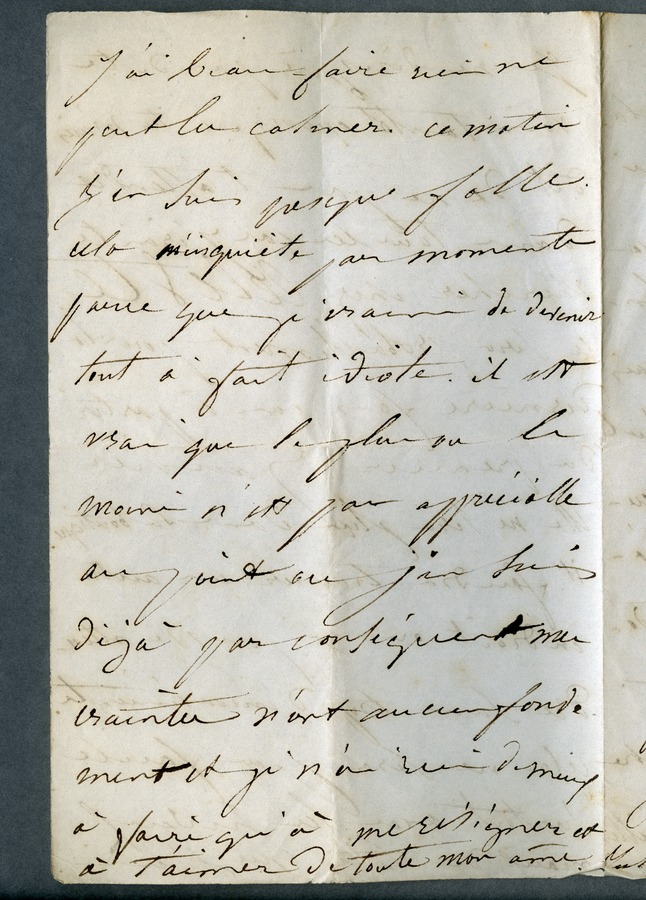 J'ai beau faire rien ne
peut les calmer. ce matin
j'en suis presque folle.
cela m'inquiète par moments
parce que je crains de devenir
tout à fait idiote. il est
vrai que le plus ou le
moins n'est pas appréciable
au point ou j'en suis
déjà par conséquent mes
craintes n'ont aucun fonde
ment et je n'ai rien de mieux
à faire qu'à me résigner et
à t'aimer de toute mon âme.